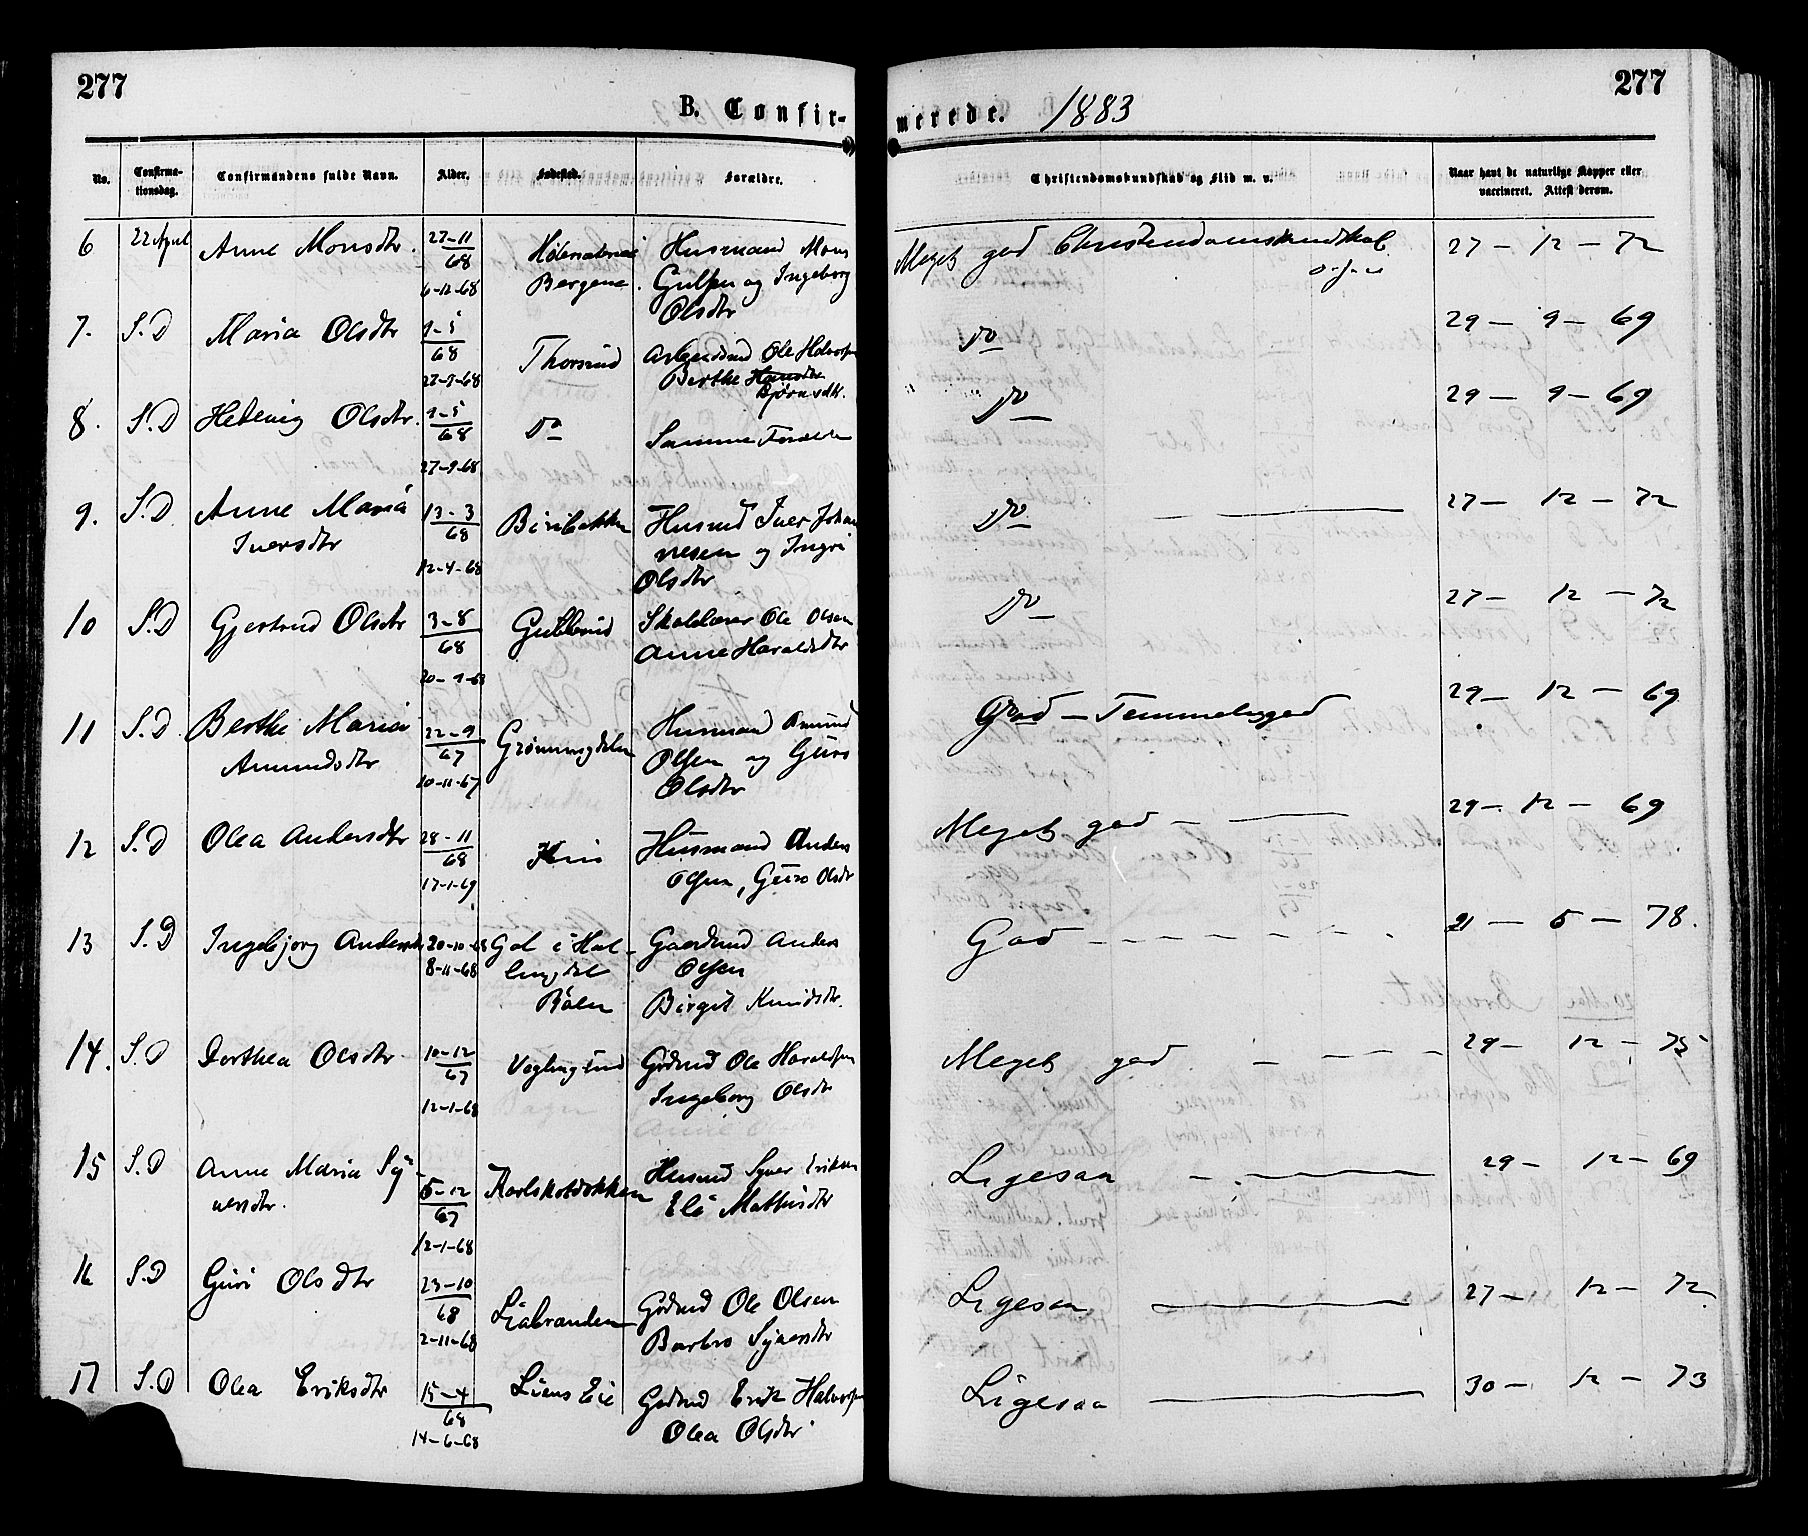 277
277
B. Confir-
merede. 1883
No.
Confirma-
tionsdag.
Confirmandens fulde Navn.
Alder.
Fødested.
Forældre.
Christendomskundskab og Flid m. v.
Naar havt de naturlige Kopper eller
vaccineret. Attest derom.
6 22 April Anne Monsdtr. 27-11 Husmand Mons Meget god Christendomskundskab 27 - 12 - 72
68
6-12-68 Bergene. Gulsen og Ingeborg
Olsdtr
7. S.D Maria Olsdtr 9-5 Do 29 - 9 - 69
68 Thorsrud Ole Halvorsen
27-9-68 Berthe Hansdtr
Bjørnsdtr.
8. S.D Hedevig Olsdtr. 9-5 Do Samme Forældre Do 29 - 9 - 69
68
27-9-68
9. S.D. Anne Maria 13-3 Biribakken Husmd Iver Johan Do 27 - 12 - 72
Iversdtr 68 nesen og Ingri
12-4-68 Olsdtr
10 S.D Gjertrud Olsdtr 3-8 Gullerud Skolelærer Ole Olsen Do 27 - 12 - 72
68 Anne Haraldsdtr
20-9-68
11 S.D. Berthe Maria 22-9 Husmand Amund God - Temmelig god 29 - 12 - 69
Amundsdtr 67 Olsen og Guro
10-11-67 Olsdtr
12 S.D Olea Andersdtr 28-11 Husmand Anders Meget god - 29 - 12 - 69
68 Olsen, Guro Olsdtr
17-1-69
13 S.D Ingebjorg Andersdtr 20-10-68 Gol i Hal- Gaardmd Anders God 21 - 5 - 78.
8-11-68 lingdal Olsen
Birgit Knudsdtr.
14. S.D Dorthea Olsdtr 10-12 Gdmd Ole Haraldsen Meget god 29 - 12 - 75
67 Ingeborg Olsdtr
12-1-68
15 S.D Anne Maria Sy- 5-12 Husmd Syver Eriksen Ligesaa 29 - 12 - 69
versdtr. 67 Eli Mathisdtr
12-1-68
16 S.D Guri Olsdtr 23-10 Liabraaten Gdmd Ole Olsen Ligesaa 27 - 12 - 72
68 Barbro Syversdtr
2-11-68
17 S.D Olea Eriksdtr 15-4 Liens Eie Gdmd Erik Halvorsen Ligesaa 30 - 12 - 73
68 Olea Olsdtr
14-6-68